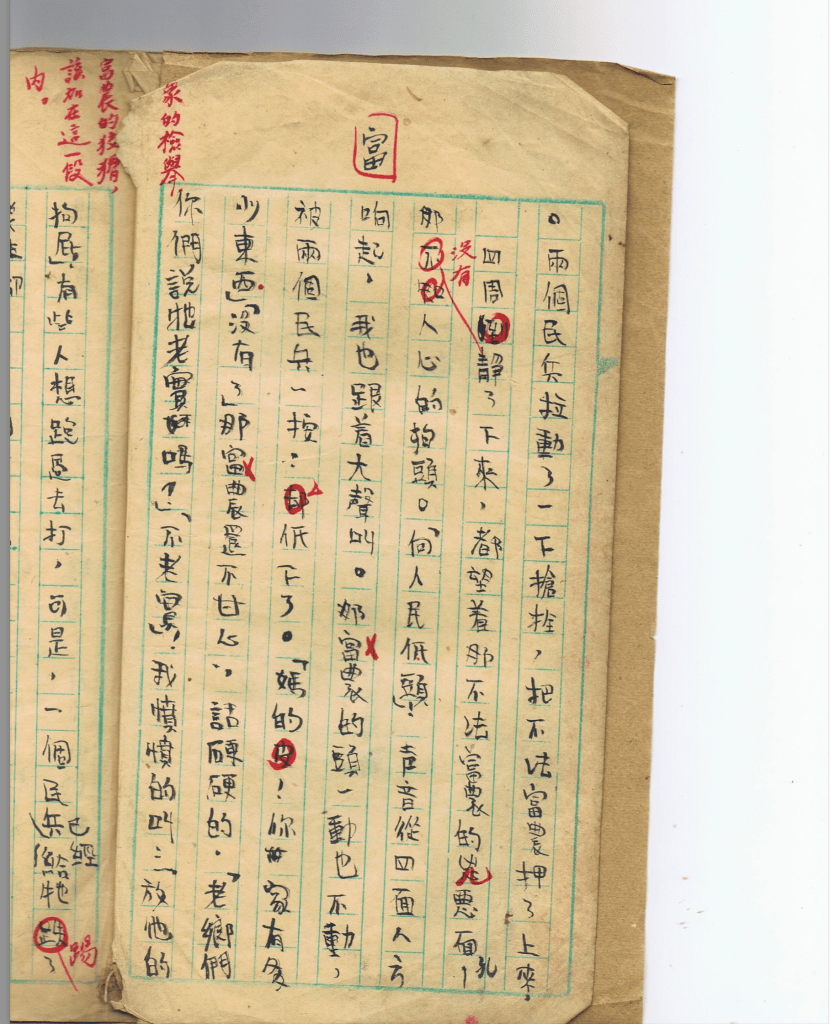 富
。兩個民兵拉動了一下槍栓，把不法富農押了上來，
四周靜了下來，都望着那不法富農的兇惡面孔
沒有
那人心的狗頭。「向人民低頭」！声音從四面八方
响起，我也跟着大聲叫。那富農的頭一動也不動，
被兩個民兵一按：却低下了。「媽的皮！你家有多
少東西」「沒有了」那富農還不甘心，話硬硬的．「老鄉們
你們說牠老實嗎？」「不老實」！我憤憤的叫：「放他的
眾的檢舉
富農的狡猾，
該加在這一段
內。
狗屁」有些人想跑過去打，可是，一個民兵已經給牠
踢了